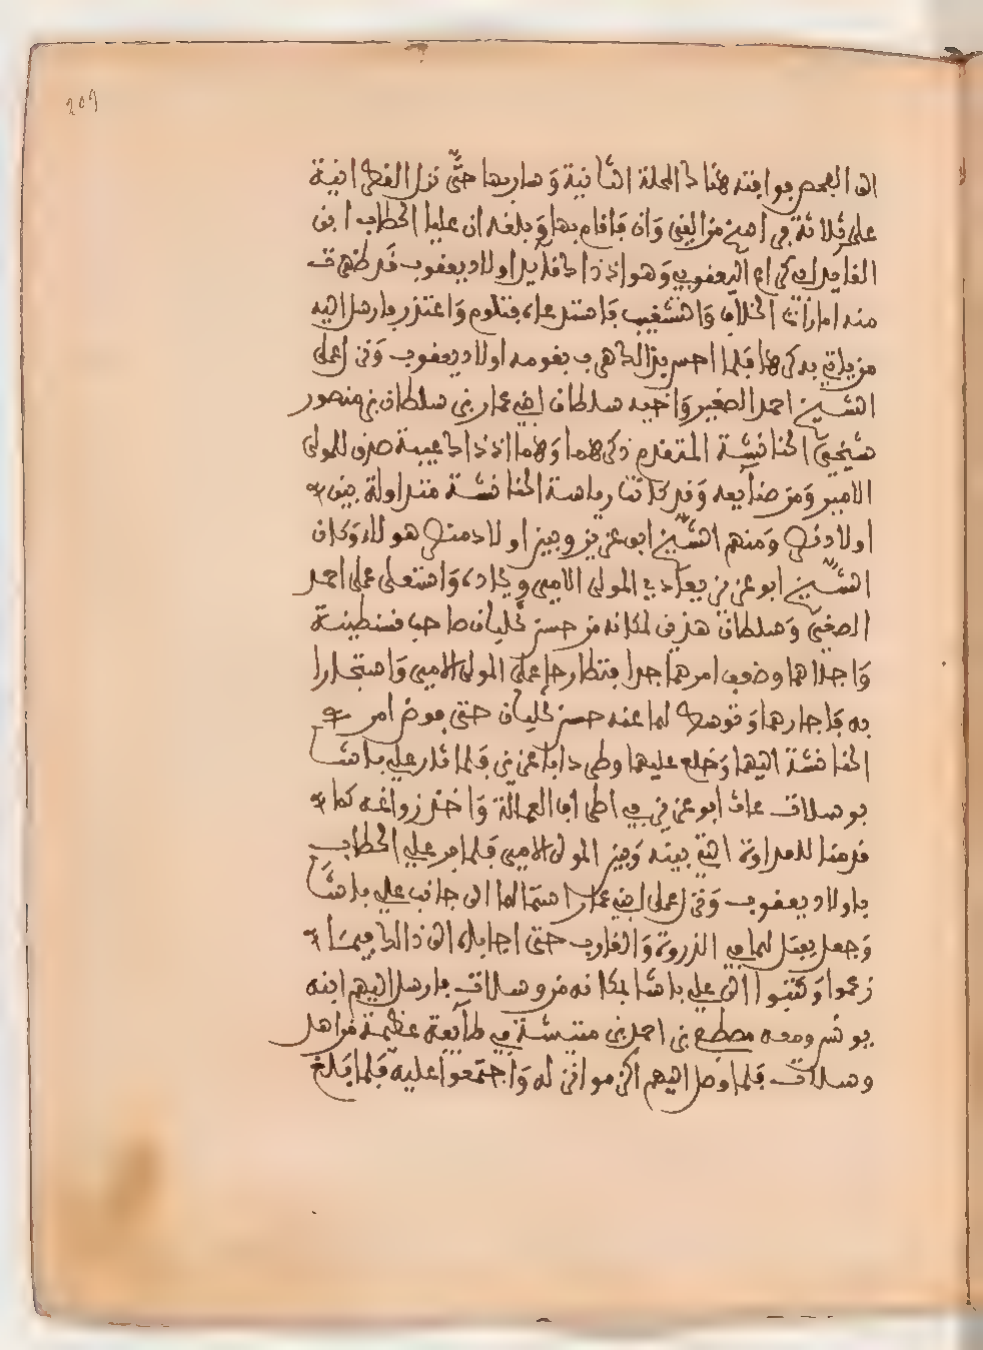 209
الى الفحص فوافته هنالك المحلة الثانية وسار بها حتى نزل الفهرانية
على ثلاثة في اميـن من الفى وان فاقام بها وبلغه ان عليا الحطاب ابن
القايد ابى كراع اليعقوبي وهو اذ ذاك قايد اولاد يعقوب قد ظهرت
منه امارات الخلاف والتشغيب فاستدعاه فتلوم واعتذر فارسل اليه
من ياتي به كرها فلما احس بذالك هرب بقومه اولاد يعقوب وفر على
الشيخ احمد الصغير واخيه سلطان ابنى عمار بن سلطان بن منصور
شيخي الحنانشة المتقدم ذكرهما وهما اذ ذاك عيبة صدق للمولى
الامير ومن صنايعه وقد كانت رياسة الحنانشة متداولة بين
اولاد نصر ومنهم الشيخ ابو عزيز وبين اولاد منصر هولاء وكان
الشيخ ابو عزيز يعادي المولى الامير ويحاده واستعلى على احمد
الصغير وسلطان هذين لمكانه من حسن كليان صاحب قسنطينة
واجلاهما وضعف امرهما جدا فتطارحا على المولى الامير واستجارا
به فاجارهما وتوسط لهما عند حسن كليان حتى فوض امر
الحنانشة اليهما وخلع عليهما وطرد ابا عزيز فلما ثار علي باشا
بوسلات عاث ابو عزيز في اطراف العمالة واخذ زواغه كما
قدمنا للعداوة التي بينه وبين المولى الامير فلما فر علي الحطاب
باولاد يعقوب وفر على ابنى عمار استمالهما الى جانب علي باشا
وجعل يفتل لهما في الذروة والغارب حتى اجاباه الى ذالك فيما
زعموا وكتبوا الى علي باشا بمكانه من وسلات فارسل اليهم ابنه
يونس ومعه مصطفى بن احمد بن متيشة في طايفة عظيمة من اهل
وسلات فلما وصل اليهم اكرموا نزله واجتمعوا عليه فلما بلغ